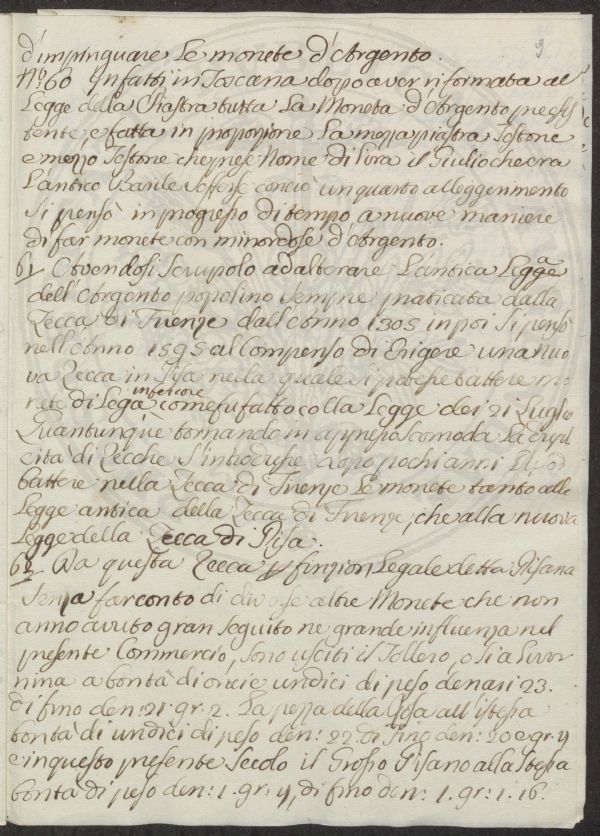 d'impinguare le monete d'Argento.
9
N.º 60 Infatti in Toscana dopo aver riformata al
Legge della Piastra tutta La Moneta d'Argento preesis
tente, e fatta in proporzione La mezza piastra Testone
e mezzo Testone che prese Nome di Lira il Giulio che era
L'antico Barile sofferse conciò un quarto alleggerimento
si pensò in progresso di tempo a nuove maniere
di far monete con minor dose d'Argento.
61 Avendosi Scrupolo ad alterare L'antica Legge
dell'Argento popolino sempre praticata dalla
Zecca di Firenze dall'Anno 1305 in poi Si pensò
nell'Anno 1595 al Compenso di Erigere una nuo
va Zecca in Pisa nella quale si potesse battere mo
nete di Lega inferiore come fu fatto colla Legge dei 21 Luglio
Quantunque tornando in appresso scomoda La dupli
cità di Zecche s'introdusse dopo pochi anni
battere nella Zecca di Firenze Le monete tanto alla
Legge antica della Zecca di Firenze, che alla nuova
Legge della Zecca di Pisa.
62. Da questa Zecca p finzion Legale detta Pisana
Senza far conto di diverse altre Monete che non
anno avuto gran seguito ne grande influenza nel
presente Commercio, sono usciti il Tollero, o sia Livor
nina a bontà di oncie undici di peso denari 23.
di fino den: 21. gr: 2. La pezza della Rosa all'istessa
bontà di undici di peso den: 22. di fino den: 20 e gr. 4
e in questo presente Secolo il Grosso Pisano alla stessa
bontà di peso den: 1. gr: 4, di fino den: 1. gr: 1. 16.